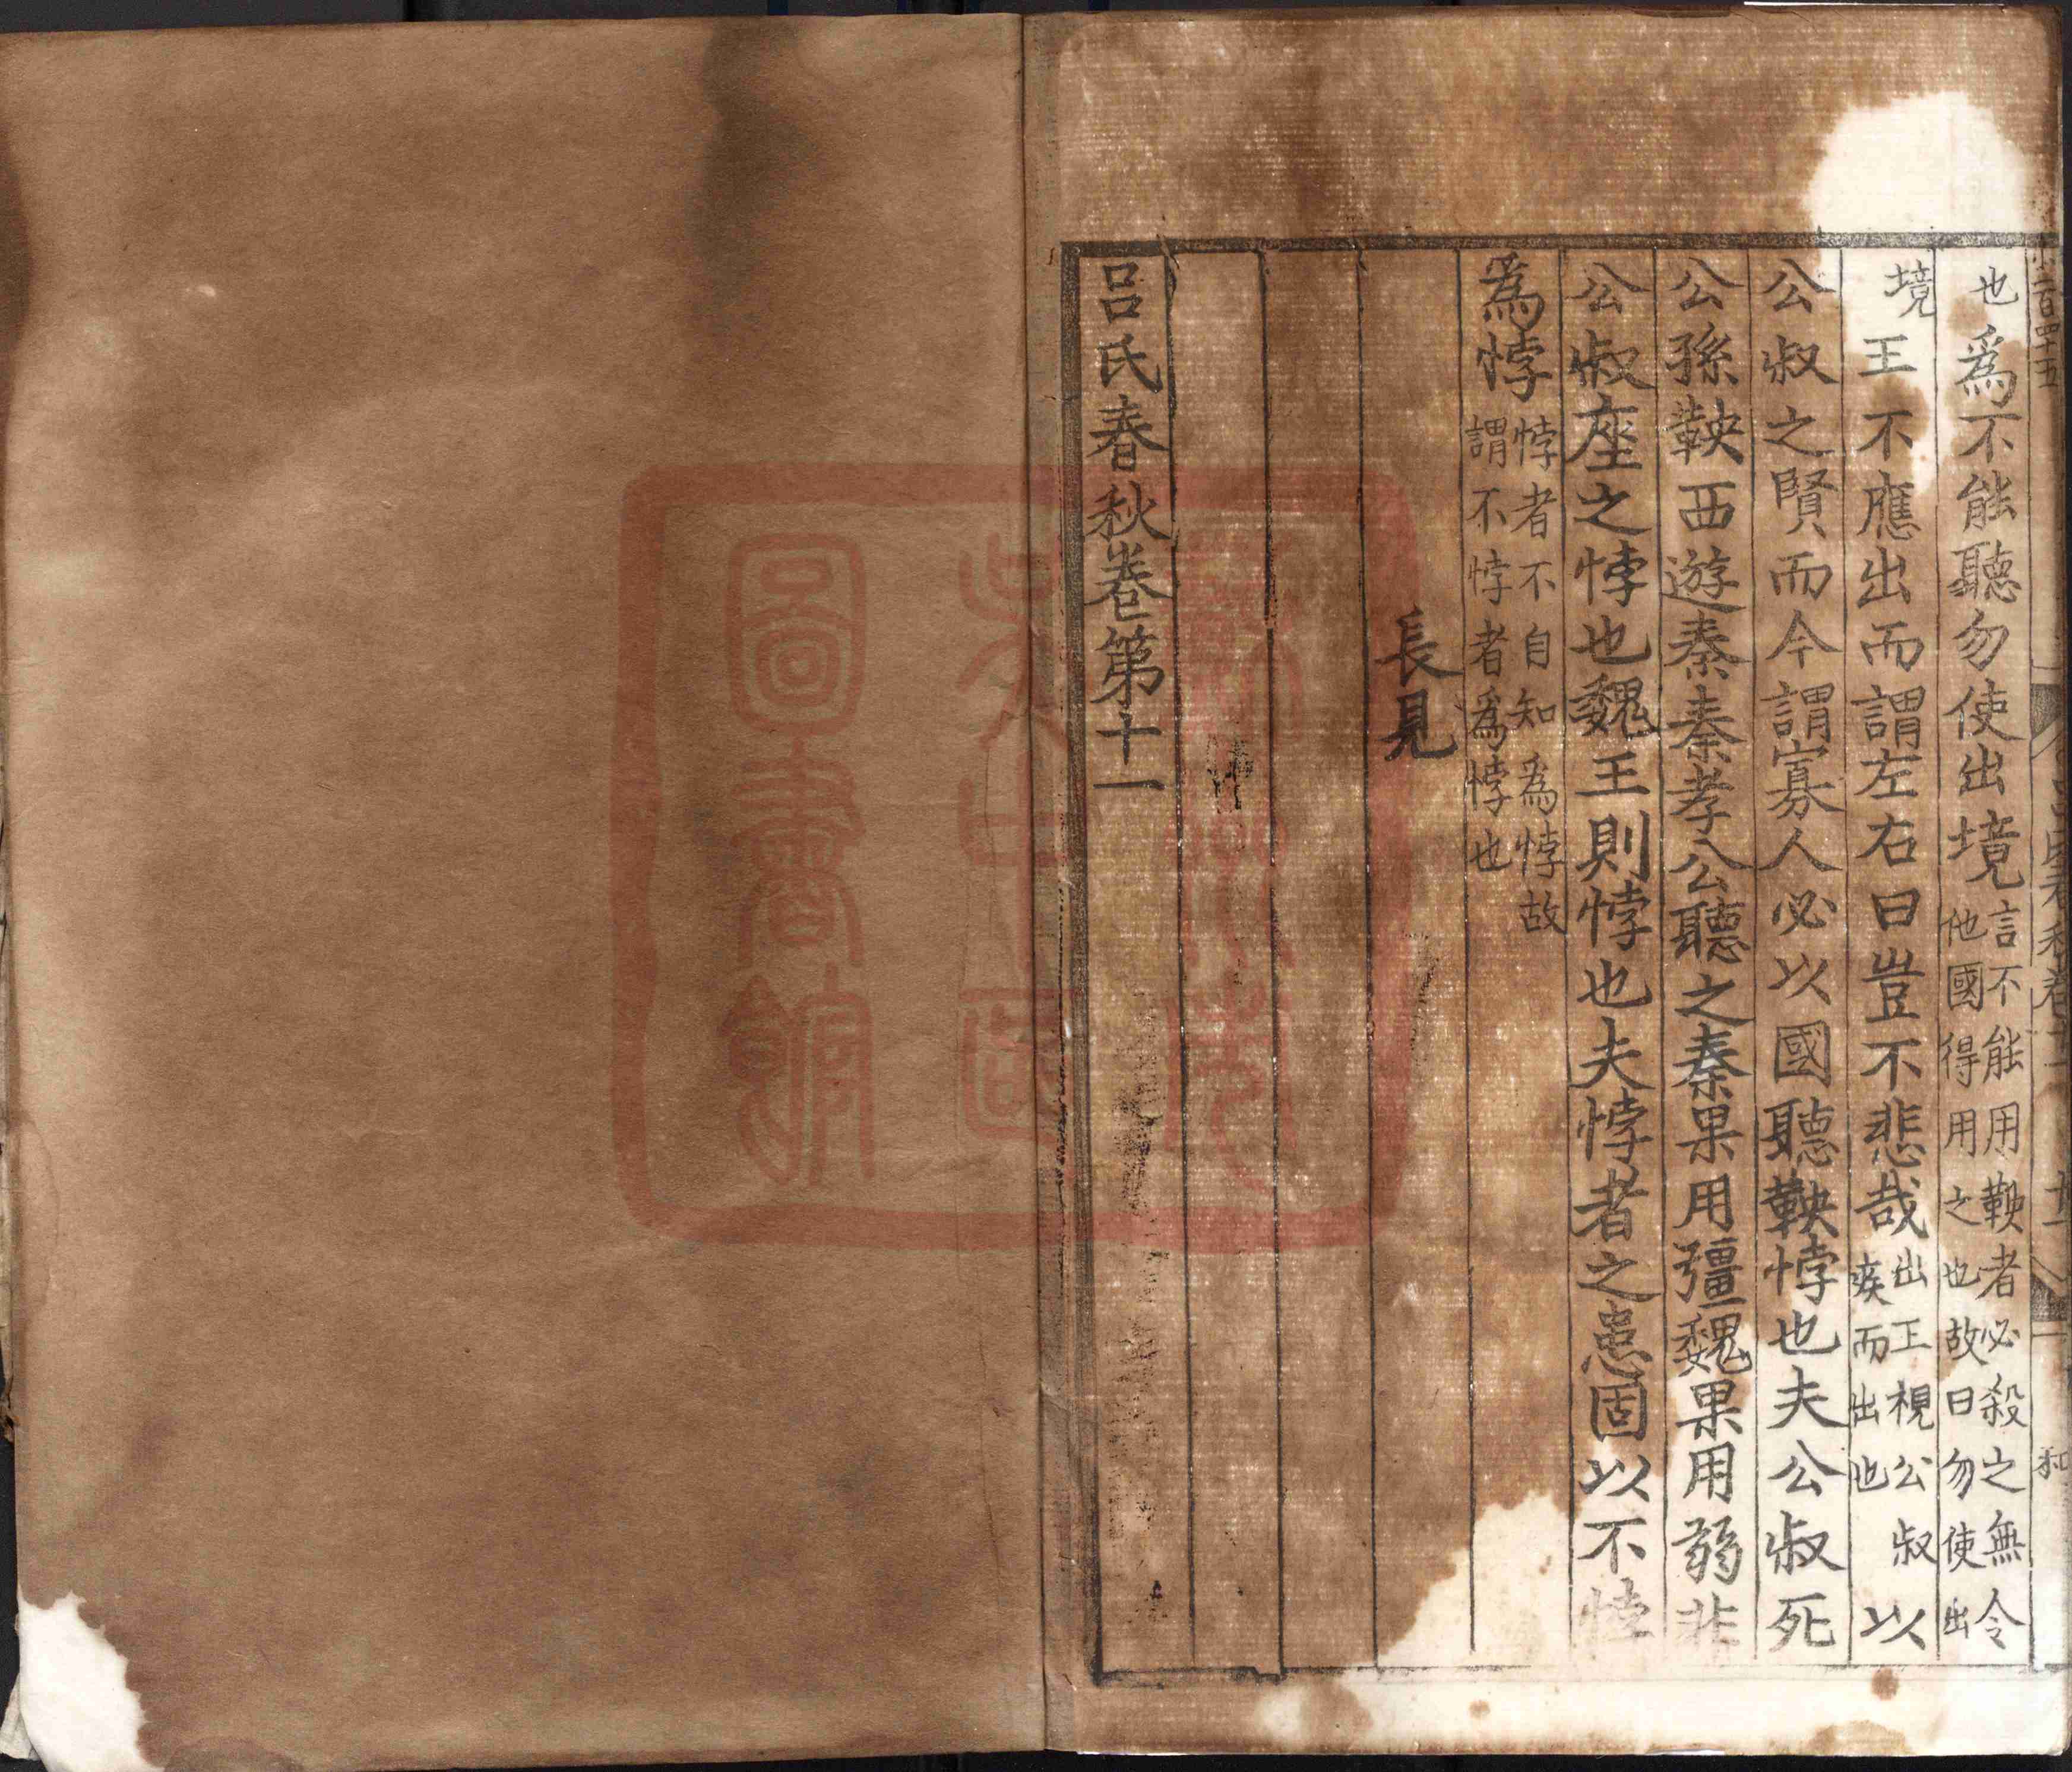 也爲不能聽勿使出境言不能用鞅者必殺之無令他國得用之也故曰勿使出
境王不應出而謂左右曰豈不悲哉出王視公叔疾而出也以
公叔之賢而今謂寡人必以國聽鞅悖也夫公叔死
公孫鞅西遊秦秦孝公聽之秦果用彊魏果用弱非
公叔座之悖也魏王則悖也夫悖者之患固以不悖
爲悖悖者不自知爲悖故謂不悖者爲悖也
長見
呂氏春秋卷第十一
圖書館